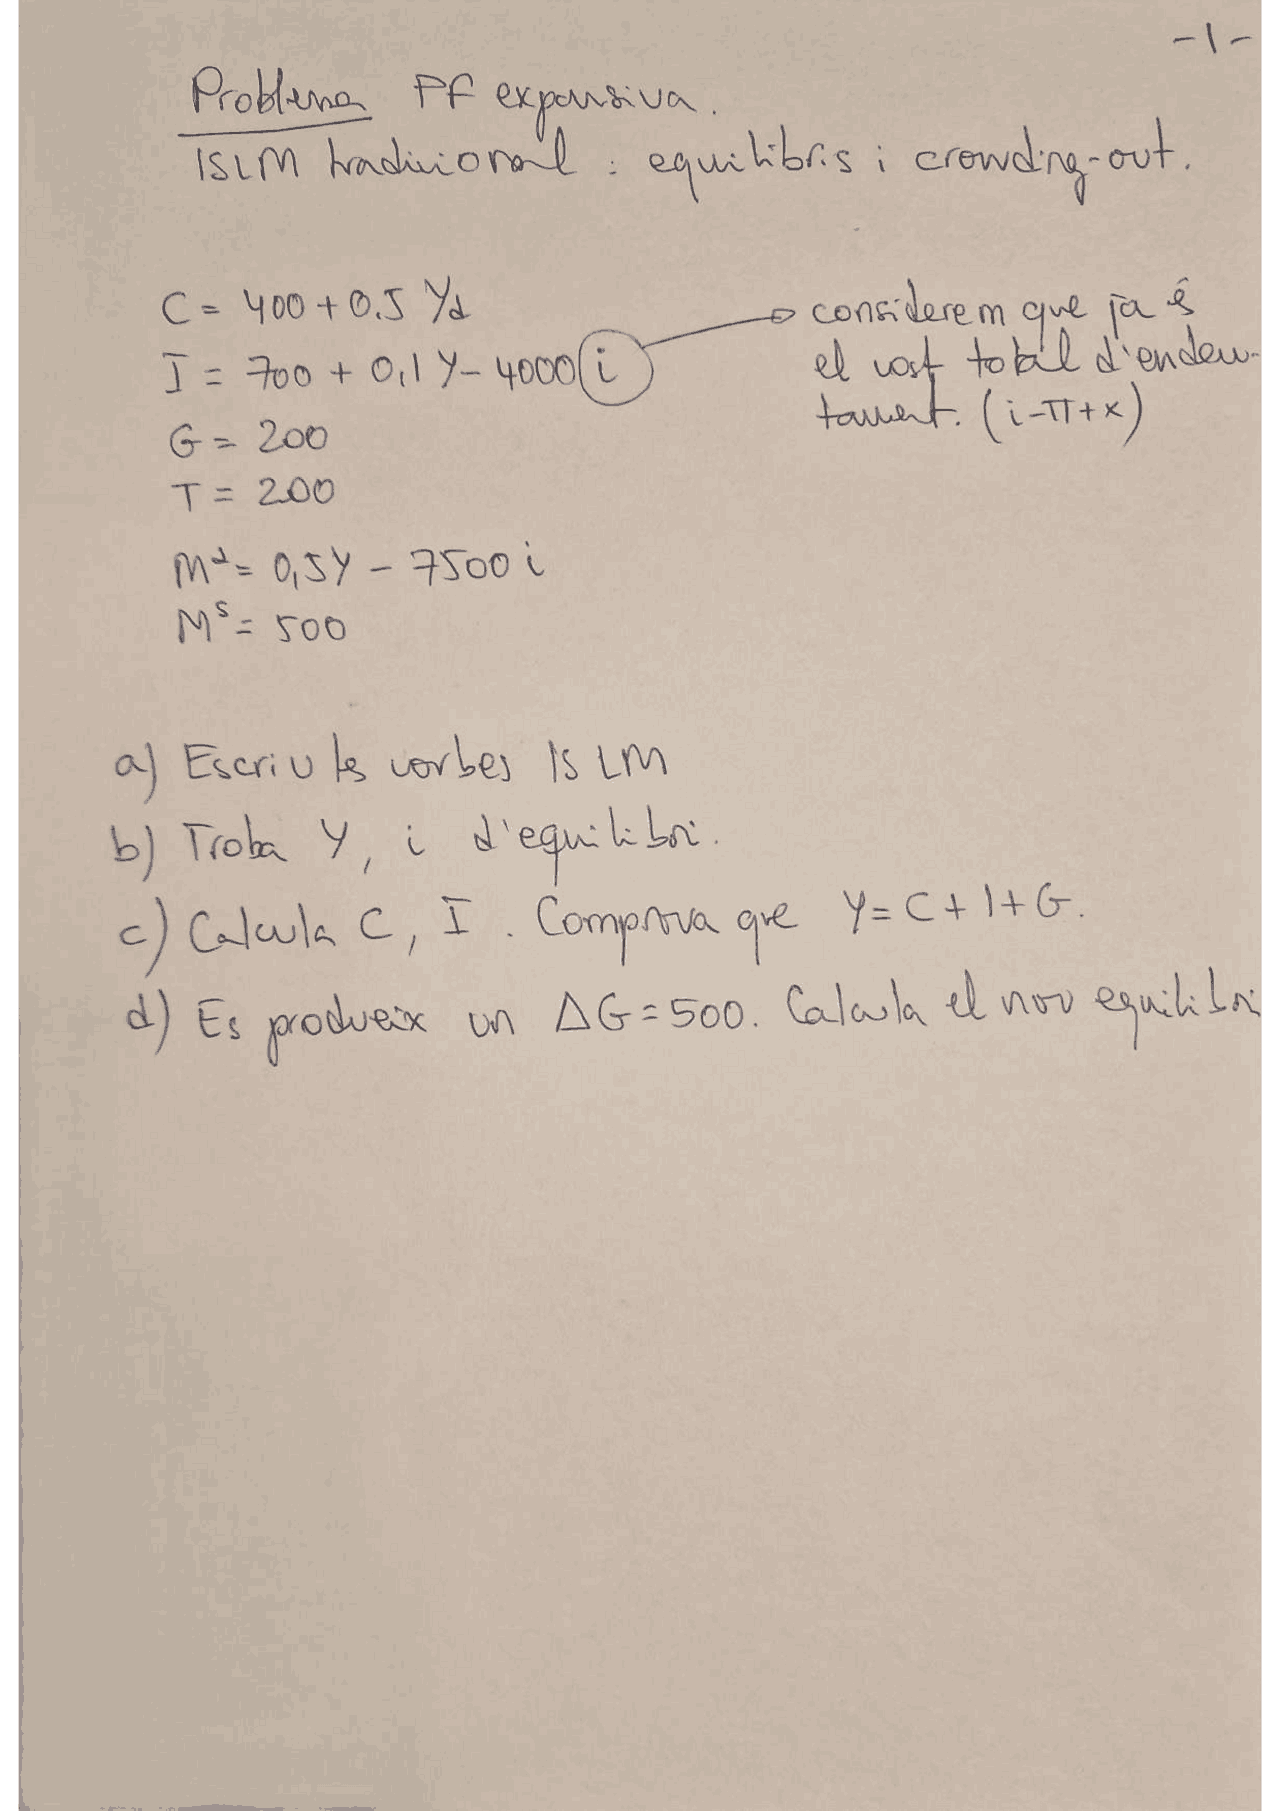 -1-
Problema PF expansiva.
ISLM tradicional : equilibris i crowding-out.
C = 400 + 0.5 Yd
I = 700 + 0,1 Y - 4000 i
considerem que ja és
el cost total d'endeu-
tament. (i-π+x)
G = 200
T = 200
Mᵈ = 0,5Y - 7500 i
Mˢ = 500
a) Escriu les corbes IS LM
b) Troba Y, i d'equilibri.
c) Calcula C, I. Comprova que Y = C + I + G.
d) Es produeix un ΔG = 500. Calcula el nou equilibri